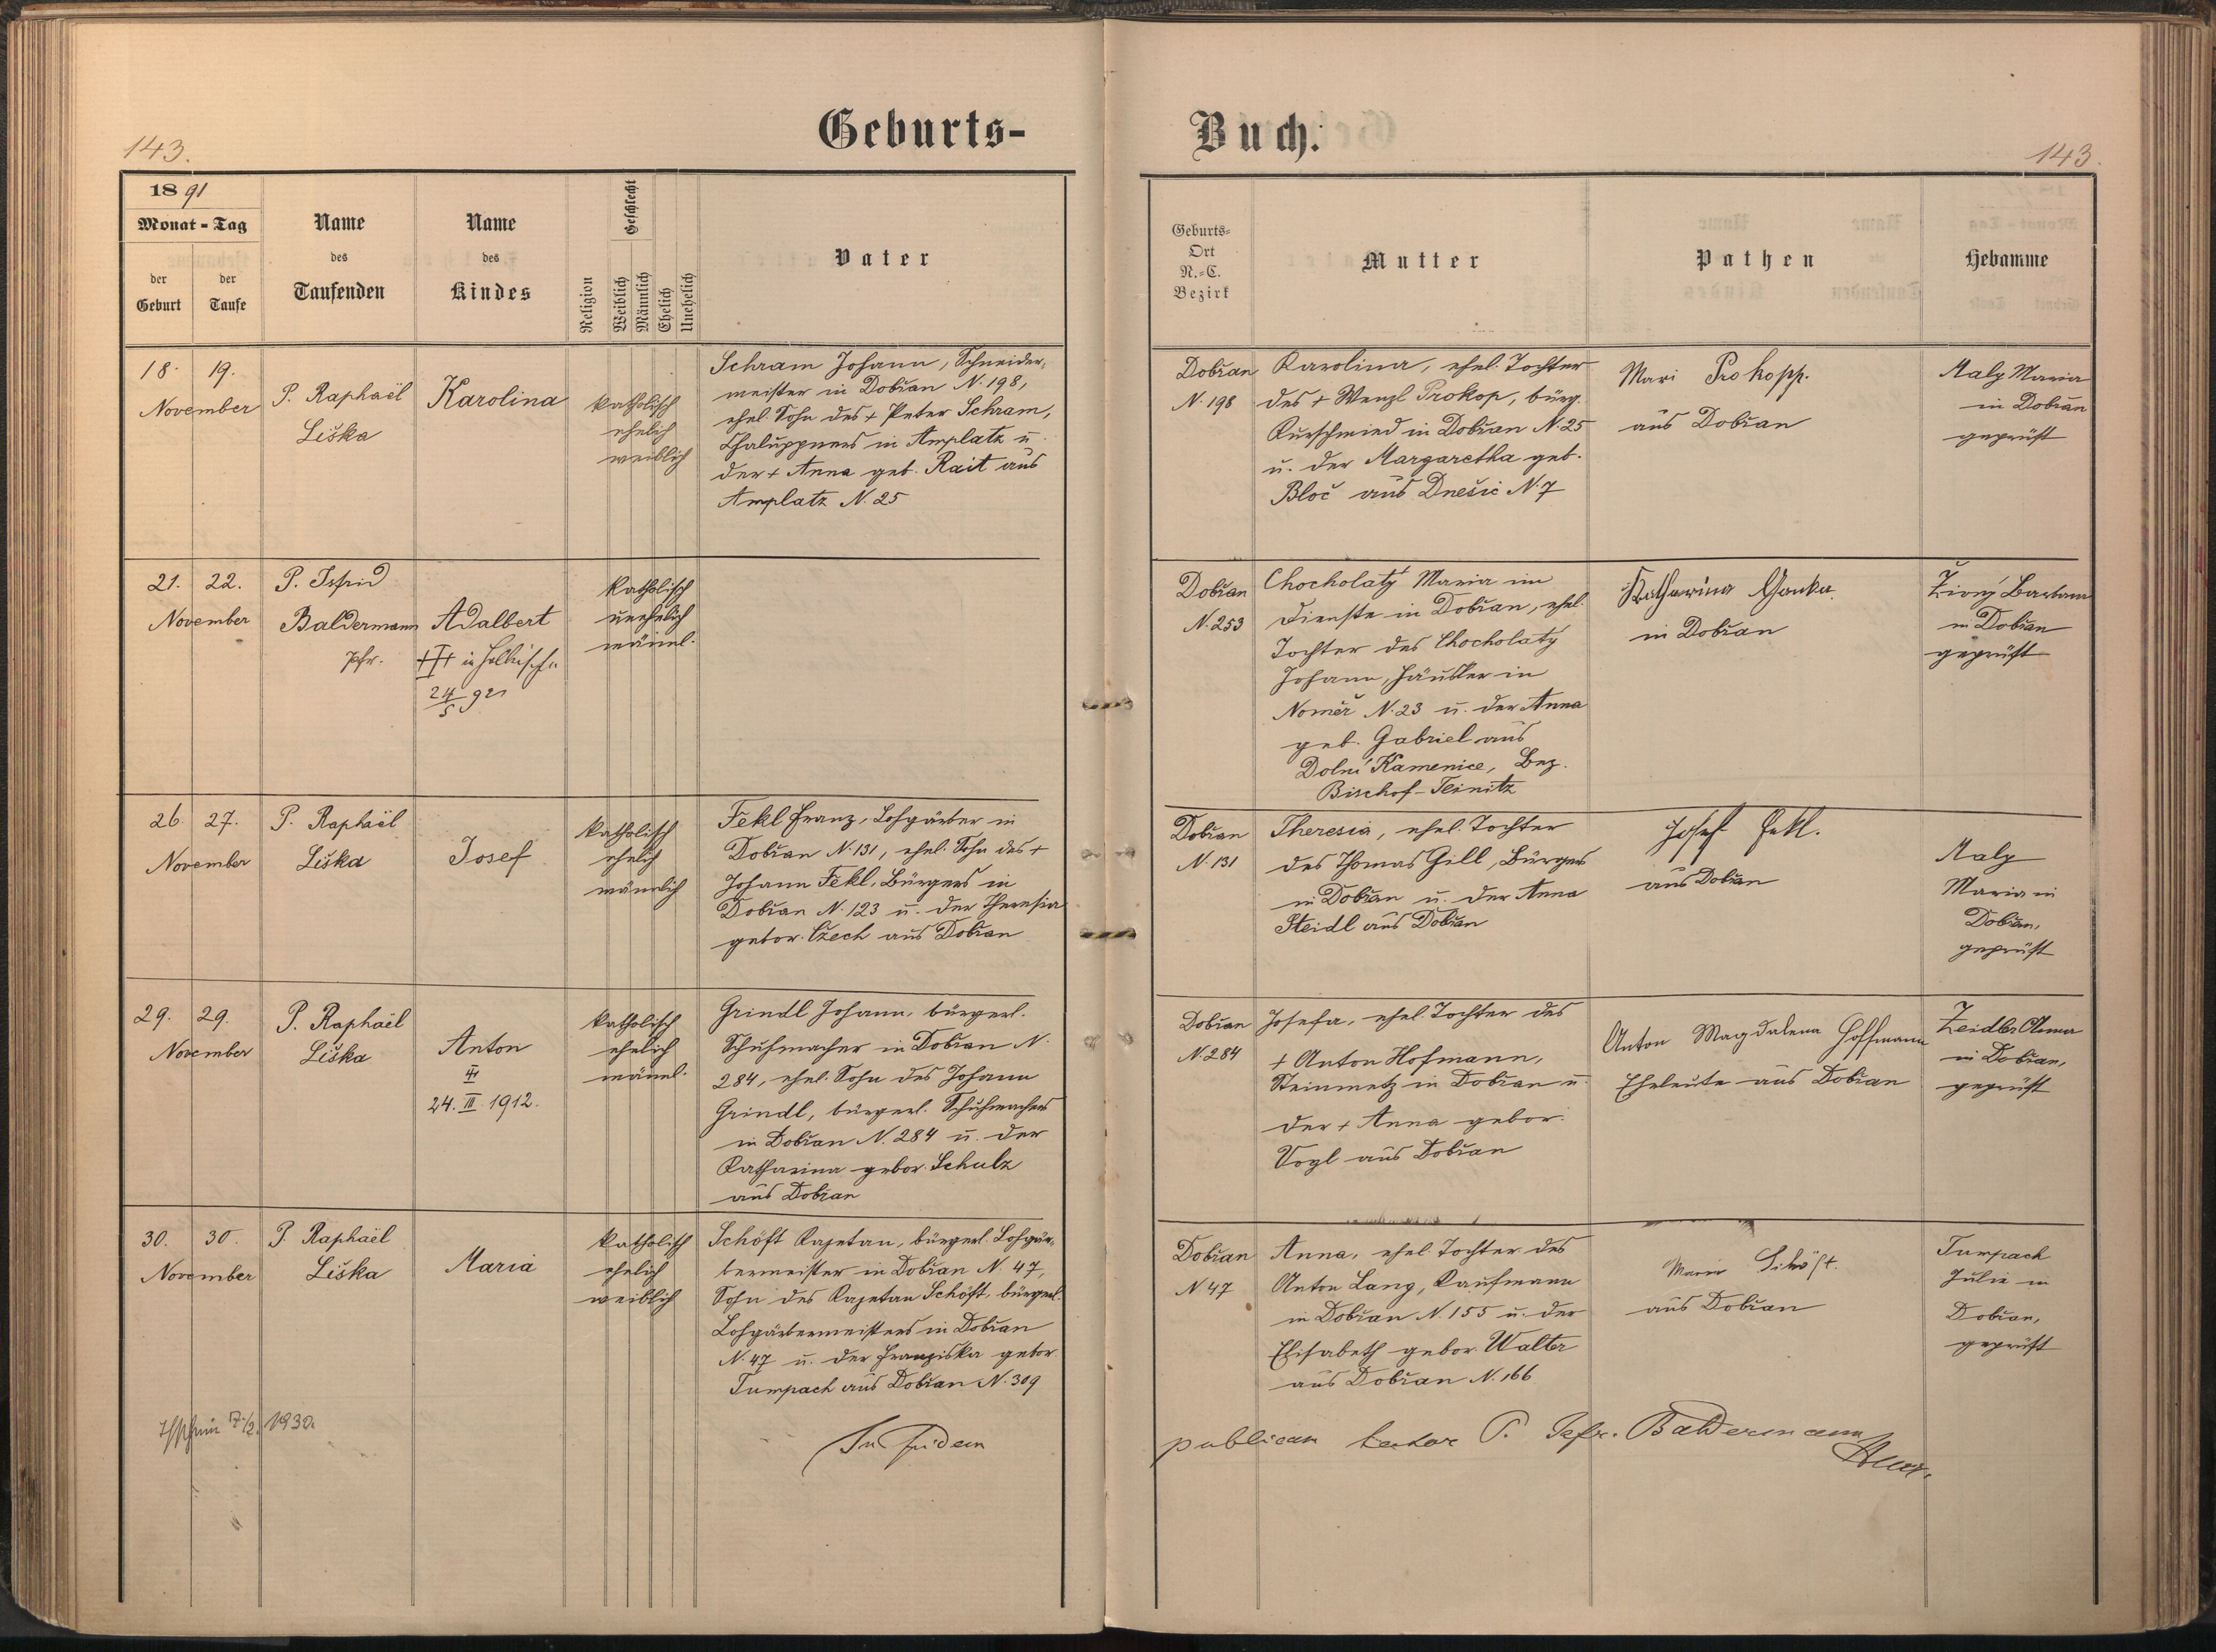 143.
Geburts-
Buch:
143.
1891
Monat - Tag
der Geburt
der Taufe
Name des Taufenden
Name des Kindes
Religion
Geschlecht
Weiblich
Männlich
Ehelich
Unehelich
Vater
Geburts-Ort N.-C. Bezirk
Mutter
Pathen
Hebamme
18. 19.
November
P. Raphaël
Liška
Karolina
katholisch
ehelich
weiblich
Schram Johann, Schneider-
meister in Dobřan N. 198,
ehel. Sohn des + Peter Schram,
Chaluppners in Amplatz u.
der + Anna geb. Rait aus
Amplatz N. 25
Dobřan
N. 198
Karolina, ehel. Tochter
des + Wenzl Prokop, bürg.
Kurschmied in Dobřan N. 25
u. der Margaretha geb.
Bloč aus Dnešic N. 7
Mari Prokopp.
aus Dobřan
Maly Maria
in Dobřan
geprüft
21. 22.
November
P. Isfrid
Baldermann
pfr.
Adalbert
24/5 921
katholisch
unehelich
männl.
Dobřan
N. 253
Chocholatý Maria im
Dienste in Dobřan, ehel.
Tochter des Chocholatý
Johann, Häusler in
Noměř N. 23 u. der Anna
geb. Gabriel aus
Dolní Kamenice, Bez.
Bischof-Teinitz
Katharina
in Dobřan
Živný Barbara
in Dobřan
geprüft
26. 27.
November
P. Raphaël
Liška
Josef
katholisch
ehelich
männlich
Fekl Franz, Lohgärber in
Dobřan N. 131, ehel. Sohn des +
Johann Fekl, Bürgers in
Dobřan N. 123 u. der Theresia
gebor. Czech aus Dobřan
Dobřan
N. 131
Theresia, ehel. Tochter
des Thomas Gill, Bürgers
in Dobřan u. der Anna
Steidl aus Dobřan
Josef Fekl.
aus Dobřan
Maly
Maria in
Dobřan,
geprüft
29. 29.
November
P. Raphaël
Liška
Anton
24. III. 1912.
katholisch
ehelich
männl.
Grindl Johann, bürgerl.
Schuhmacher in Dobřan N.
284, ehel. Sohn des Johann
Grindl, bürgerl. Schuhmachers
in Dobřan N. 284 u. der
Katharina gebor. Schulz
aus Dobřan
Dobřan
N. 284
Josefa, ehel. Tochter des
+ Anton Hofmann,
Steinmetz in Dobřan u.
der + Anna gebor.
Vogl aus Dobřan
Anton Magdalena Hoffmann
Eheleute aus Dobřan
Zeidler Anna
in Dobřan,
geprüft
30. 30.
November
P. Raphaël
Liška
Maria
katholisch
ehelich
weiblich
Schöft Kajetan, bürgerl. Lohgär-
bermeister in Dobřan N. 47,
Sohn des Kajetan Schöft, bürgerl.
Lohgärbermeisters in Dobřan
N. 47 u. der Franziska gebor
Tumpach aus Dobřan N. 309
Dobřan
N. 47
Anna, ehel. Tochter des
Anton Lang, Kaufmann
in Dobřan N. 155 u. der
Elisabeth gebor. Walter
aus Dobřan N. 166
Marie Schöft.
aus Dobřan
Tumpach
Julie in
Dobřan,
geprüft
7/2. 1930.
In fidem
publicam testor P. Isfr. Baldermann